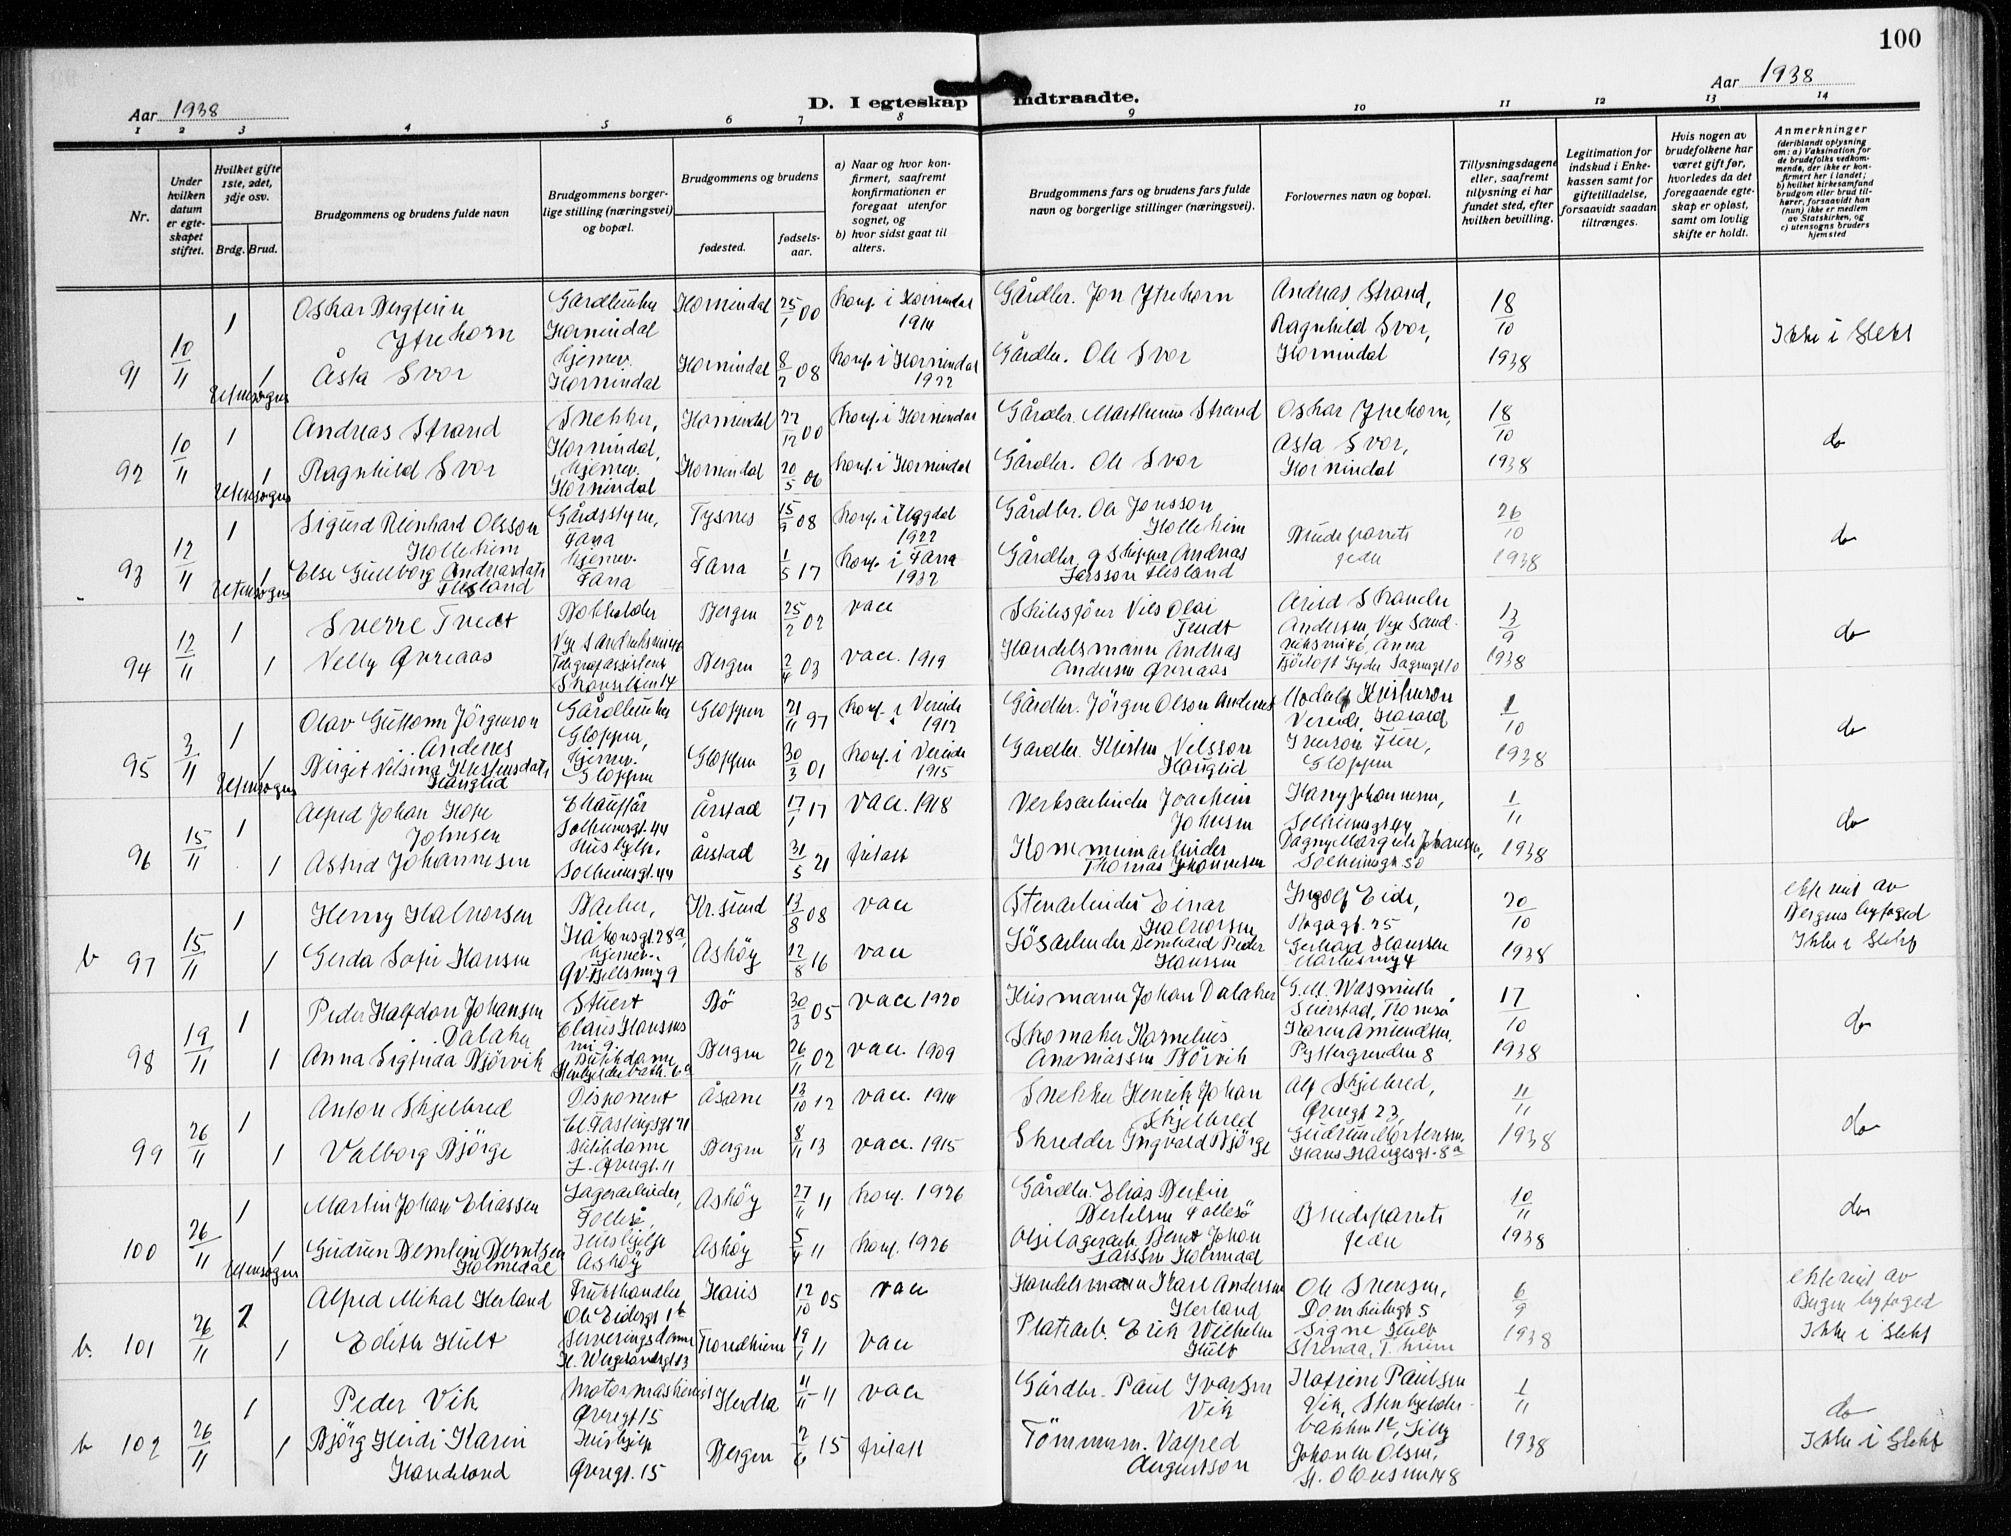 100
Aar 1938
D. I egteskap indtraadte.
Aar 1938
1 2 3 4 5 6 7 8 9 10 11 12 13 14
Nr.
Under hvilken datum er egteskapet stiftet.
Hvilket gifte 1ste, 2det, 3dje osv.
Brdg. Brud.
Brudgommens og brudens fulde navn
Brudgommens borgerlige stilling (næringsvei) og bopæl.
Brudgommens og brudens
fødested.
fødselsaar.
a) Naar og hvor konfirmert, saafremt konfirmationen er foregaat utenfor sognet, og
b) hvor sidst gaat til alters.
Brudgommens fars og brudens fars fulde navn og borgerlige stillinger (næringsvei).
Forlovernes navn og bopæl.
Tillysningsdagene eller, saafremt tillysning ei har fundet sted, efter hvilken bevilling.
Legitimation for indskud i Enkekassen samt for giftetilladelse, forsaavidt saadan tiltrænges.
Hvis nogen av brudefolkene har været gift før, hvorledes da det foregaaende egteskap er opløst, samt om lovlig skifte er holdt.
Anmerkninger
(deriblandt oplysning om: a) Vaksination for de brudefolks vedkommende, der ikke er konfirmert her i landet; b) hvilket kirkesamfund brudgom eller brud tilhører, forsaavidt han (hun) ikke er medlem av Statskirken, og c) utensogns bruders hjemsted
91 10/11 1 Oskar Bergfinn Ytrehorn Gårdbruker Hornindal Hornindal 25/1 00 konf. i Hornindal 1914 Gårdbr. Jon Ytrehorn Andreas Strand, Ragnhild Svor, Hornindal 18/10 1938 Ikke i slekt
1 utensogns Åsta Svor hjemmev. Hornindal Hornindal 8/2 08 konf. i Hornindal 1922 Gårdbr. Ole Svor
92 10/11 1 Andreas Strand Snekker, Hornindal, Hornindal 22/12 00 konf. i Hornindal Gårdbr. Marthinus Strand Oskar Ytrehorn, Asta Svor, Hornindal 18/10 1938 do
1 utensogns Ragnhild Svor hjemmev. Hornindal Hornindal 20/5 06 konf. i Hornindal Gårdbr. Ole Svor
93 12/11 1 Sigurd Reinhard Olsson Holleheim Gårdsstyrer, Fana Tysnes 15/9 08 konf. i Uggdal 1922 Gårdbr. Ole Jonsson Holleheim Brudeparrets fedre 26/10 1938 do
1 utensogns Else Gullborg Andreasdatr Flesland hjemmev. Fana Fana 1/5 17 konf. i Fana 1932 Gårdbr. og skipper Andreas Larsson Flesland
94 12/11 1 Sverre Tvedt Bokholder Bergen 25/2 02 vacc Skibsfører Nils Olai Tvedt 13/9 1938 do
1 Nelly Øvreaas Telegrafassistent Bergen 2/4 03 vacc. 1919 Handelsmann Andreas Andersen Øvreaas
95 3/11 1 Olav Guttorm Jörgenson Andenes Gårdbruker Gloppen, Gloppen 21/11 97 konf. i Vereide 1912 Gårdbr. Jörgen Olson Andenes Gloppen 1/10 1938 do
1 utensogns Birget Nilsina Kristensdatr Hauglid hjemmev. Gloppen Gloppen 30/3 01 konf. i Vereide 1915 Gårdbr. Kristen Nilsson Hauglid
96 15/11 1 Alfred Johan Hope Johnsen Chauffør Solheimsgt. 44 Årstad 17/1 17 vacc. 1918 Verksarbeider Joachim Johnsen Harry Johannesen, Solheimsgt 44 1/11 1938 do
1 Astrid Johannesen Hushjelp. Solheimsgt. 44 Årstad 31/5 21 fritatt Kommunearbeider Thomas Johannesen Dagny Margrete Johansen, Solheimsgt 50
b 97 15/11 1 Henry Halvorsen Baker, Håkonsgt. 28a, Kr.sund 13/8 08 vacc Stenarbeider Einar Halvorsen Ingolf Eide, 20/10 1938 ekteviet av Bergens byfoged Ikke i slekt
1 Gerda Sofie Hansen hjemmev. Askøy 12/8 16 vacc Løsarbeider Bernhard Peder Hanssen Gerhard Hanssen
98 19/11 1 Peder Halfdan Johansen Dalaker Stuert Bø 30/3 05 vacc 1920 Husmann Johan Dalaker 17/10 1938 do
1 Anna Sigfrida Bjørvik Butikdame Bergen 26/11 02 vacc. 1909 Skomaker Kornelius Ananiassen Bjørvik Karen Amundsen,
99 26/11 1 Anton Skjelbred Disponent Åsane 13/10 12 vacc. 1914 Snekker Henrik Johan Skjelbred Alf Skjelbred, Øvregt 23, 11/11 1938 do
1 Valborg Bjørge Butikdame Bergen 8/11 13 vacc. 1915 Skredder Ingvald Bjørge Gudrun Mortensen, Hans Haugesgt. 8a
100 26/11 1 Martin Johan Eliassen Lagerarbeider, Follesø, Askøy 27/11 11 konf. 1926 Gårdbr. Elias Bertin Bertelsen Follesø Brudeparrets fedre 10/11 1938 do
1 utensogns Gudrun Berntine Berntsen Holmedal Hushjelp Askøy Askøy 5/4 11 konf. 1926 Oljelagerarb. Bernt Johan Larssen Holmedal
b. 101 26/11 2 Alfred Mikal Herland Frukthandler Haus 12/10 05 vacc Handelsmann Karl Andersen Herland Ole Svensen, Domkirkegt 5 6/9 1938 ekteviet av Bergen byfoged Ikke i slekt
1 Edith Hult Serveringsdame H. Wergelandsgt 13 Trondheim 19/1 11 vacc Platearb. Erik Wilhelm Hult Signe Hult Strinda, T.heim
b 102 26/11 1 Peder Vik Motormaskinist Øvregt 15 Herdla 11/11 11 vacc Gårdbr. Paul Ivarsen Vik Katrine Paulsen Vik, 1/11 1938 do Ikke i slekt
1 Bjørg Heidi Karin Handeland Hushjelp Øvregt. 15 Bergen 2/6 15 fritatt Tømmerm. Valfred Augustson